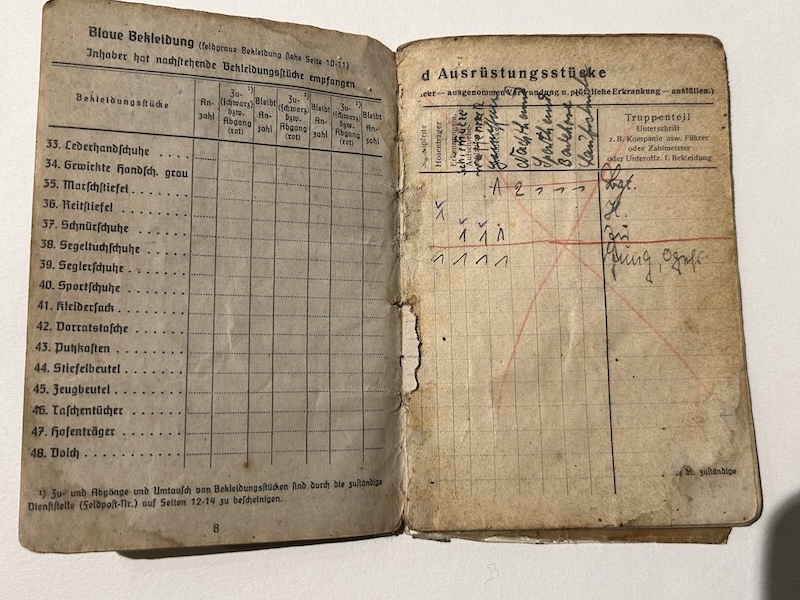 Blaue Bekleidung (feldgraue Bekleidung siehe Seite 10-11)
Inhaber hat nachstehende Bekleidungsstücke empfangen
Bekleidungsstücke
An-
zahl
Zu- ¹)
(schwarz)
bzw.
Abgang
(rot)
Bleibt
An-
zahl
Zu- ¹)
(schwarz)
bzw.
Abgang
(rot)
Bleibt
An-
zahl
Zu- ¹)
(schwarz)
bzw.
Abgang
(rot)
Bleibt
An-
zahl
33. Lederhandschuhe . . . .
34. Gewirkte Handsch. grau
35. Marschstiefel . . . . . .
36. Reitstiefel . . . . . . .
37. Schnürschuhe . . . . .
38. Segeltuchschuhe . . . .
39. Seglerschuhe . . . . . .
40. Sportschuhe . . . . . .
41. Kleidersack . . . . . . .
42. Vorratstasche . . . . . .
43. Putzkasten . . . . . . .
44. Stiefelbeutel . . . . . .
45. Zeugbeutel . . . . . . .
46. Taschentücher . . . . .
47. Hosenträger . . . . . .
48. Dolch . . . . . . . . . .
¹) Zu- und Abgänge und Umtausch von Bekleidungsstücken sind durch die zuständige
Dienststelle (Feldpost-Nr.) auf Seiten 12-14 zu bescheinigen.
8
d Ausrüstungsstücke
eer — ausgenommen Verwundung u. plötzliche Erkrankung — ausfüllen.)
Hosenträger
Truppenteil
Unterschrift
z. B. Kompanie usw. Führer
oder Zahlmeister
oder Unteroffz. f. Bekleidung
1 2 1 1 1
1
1 1 1
1 1 1 1
zuständige